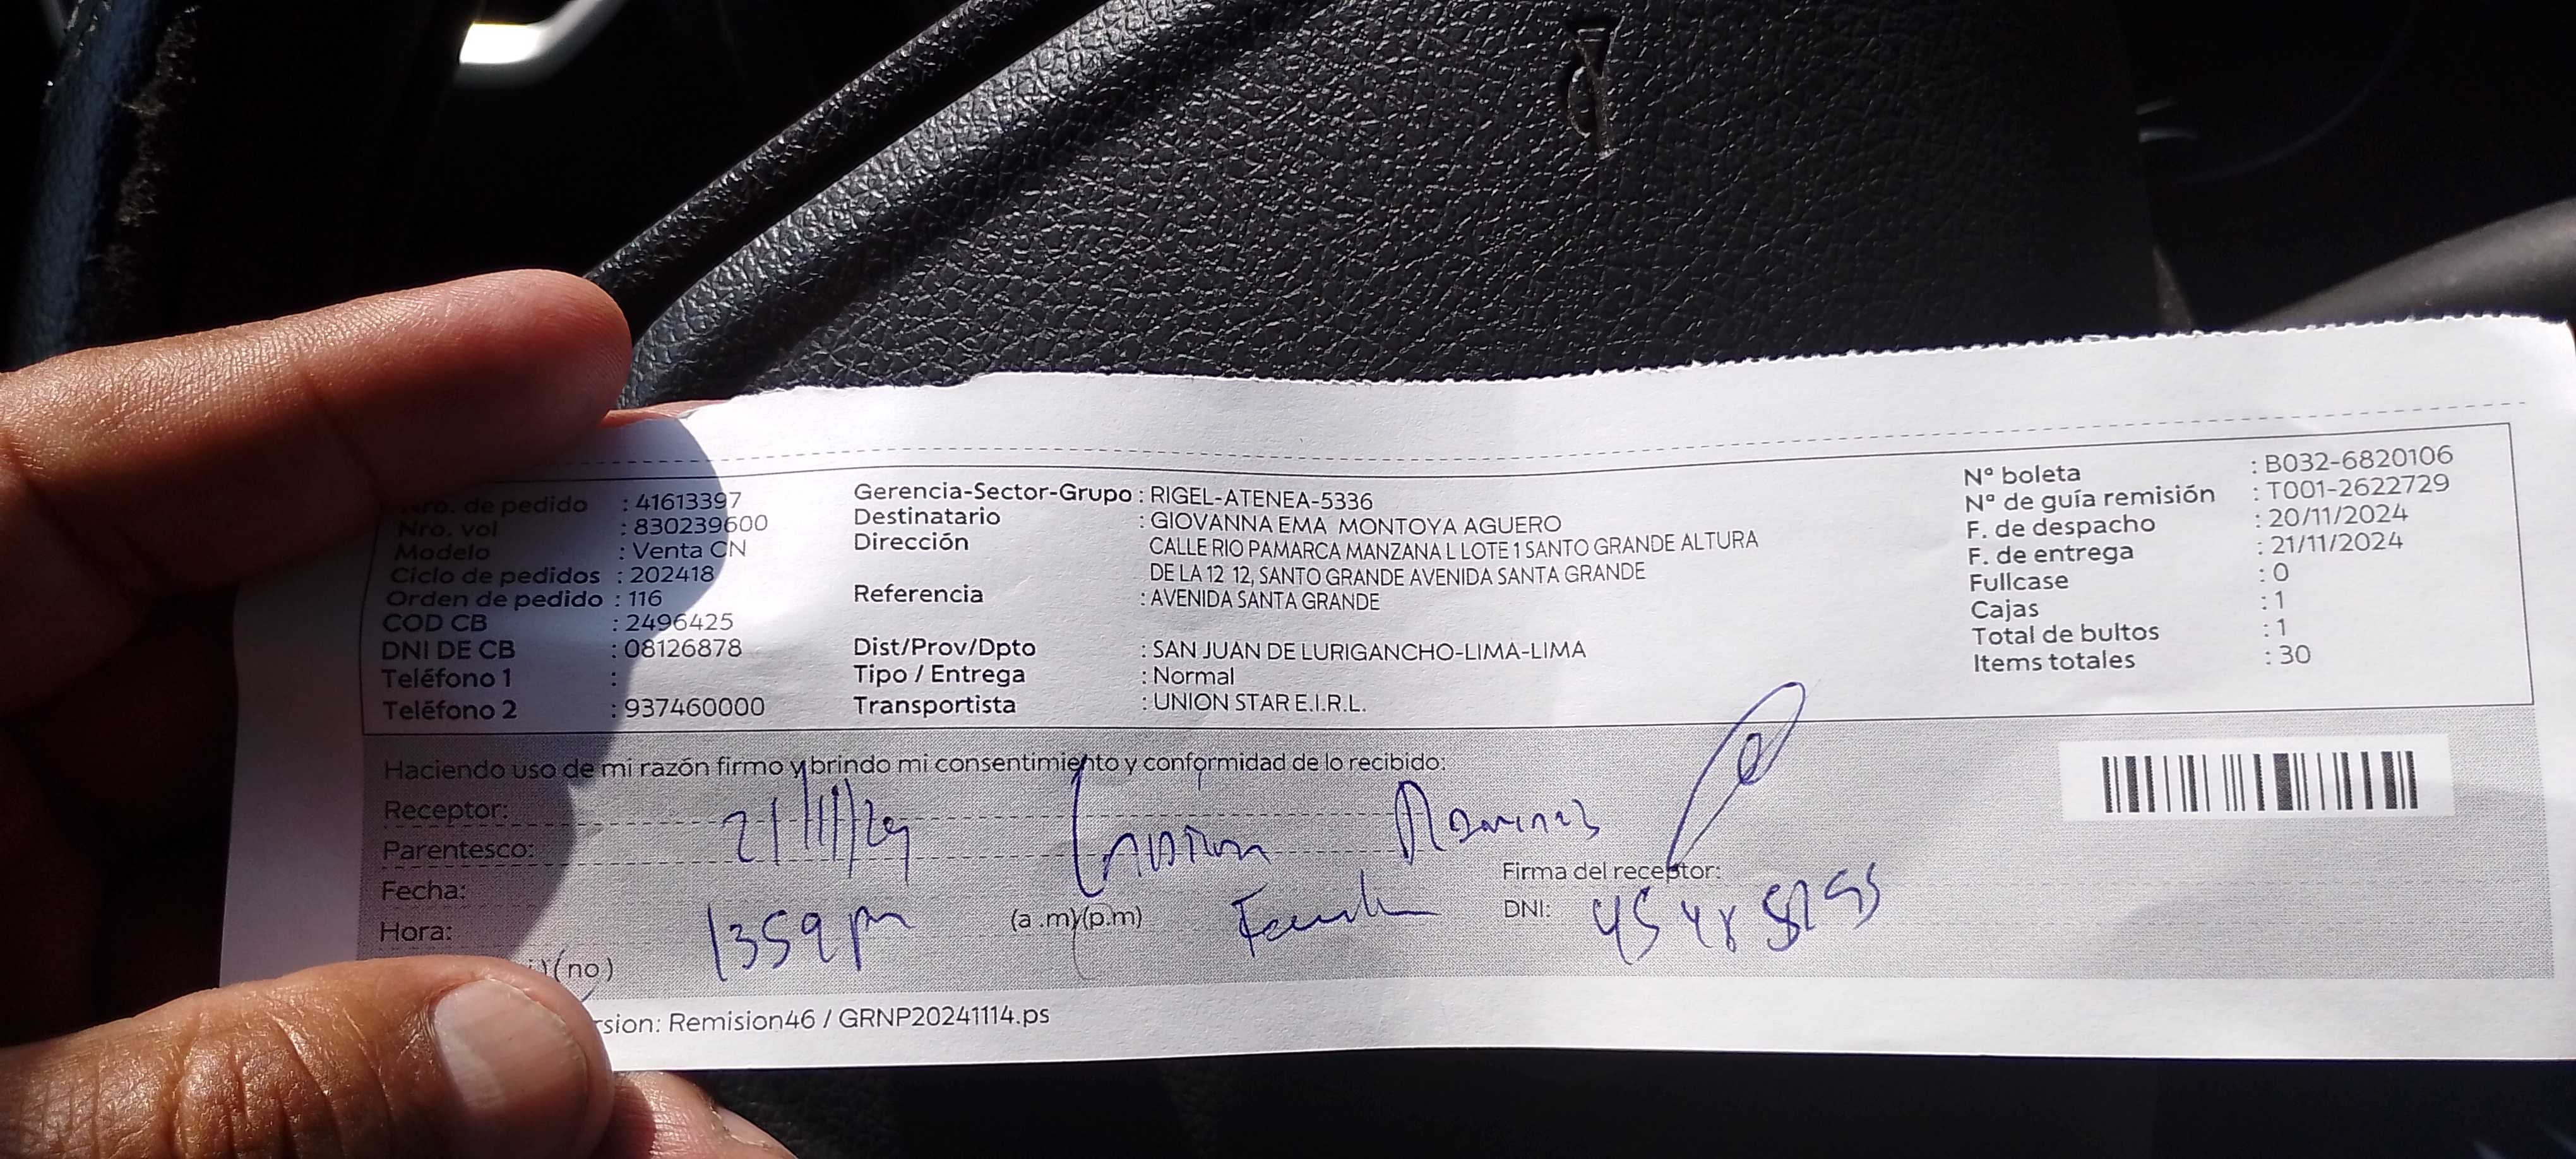 Nro. de pedido : 41613397
Nro. vol : 830239600
Modelo : Venta CN
Ciclo de pedidos : 202418
Orden de pedido : 116
COD CB : 2496425
DNI DE CB : 08126878
Teléfono 1 :
Teléfono 2 : 937460000
Gerencia-Sector-Grupo : RIGEL-ATENEA-5336
Destinatario : GIOVANNA EMA MONTOYA AGUERO
Dirección CALLE RIO PAMARCA MANZANA L LOTE 1 SANTO GRANDE ALTURA
DE LA 12 12, SANTO GRANDE AVENIDA SANTA GRANDE
Referencia : AVENIDA SANTA GRANDE
Dist/Prov/Dpto : SAN JUAN DE LURIGANCHO-LIMA-LIMA
Tipo / Entrega : Normal
Transportista : UNION STAR E.I.R.L.
Nº boleta : B032-6820106
Nº de guía remisión : T001-2622729
F. de despacho : 20/11/2024
F. de entrega : 21/11/2024
Fullcase : 0
Cajas : 1
Total de bultos : 1
Items totales : 30
Haciendo uso de mi razón firmo y brindo mi consentimiento y conformidad de lo recibido:
Receptor:
Parentesco: 21/11/24
Fecha:
Firma del receptor:
Hora: 1359 pm (a .m)(p.m)
DNI:
(no)
rsion: Remision46 / GRNP20241114.ps